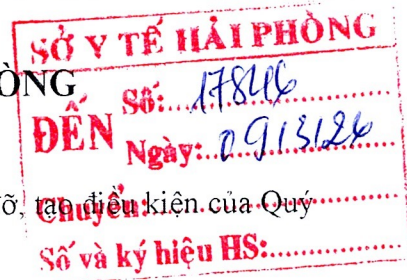 SỞ Y TẾ HẢI PHÒNG
ÒNG
ĐẾN
Số:.....17846
Ngày:..09/3/26
ỡ, tạo điều kiện của Quý
Chuyển:
Số và ký hiệu HS: